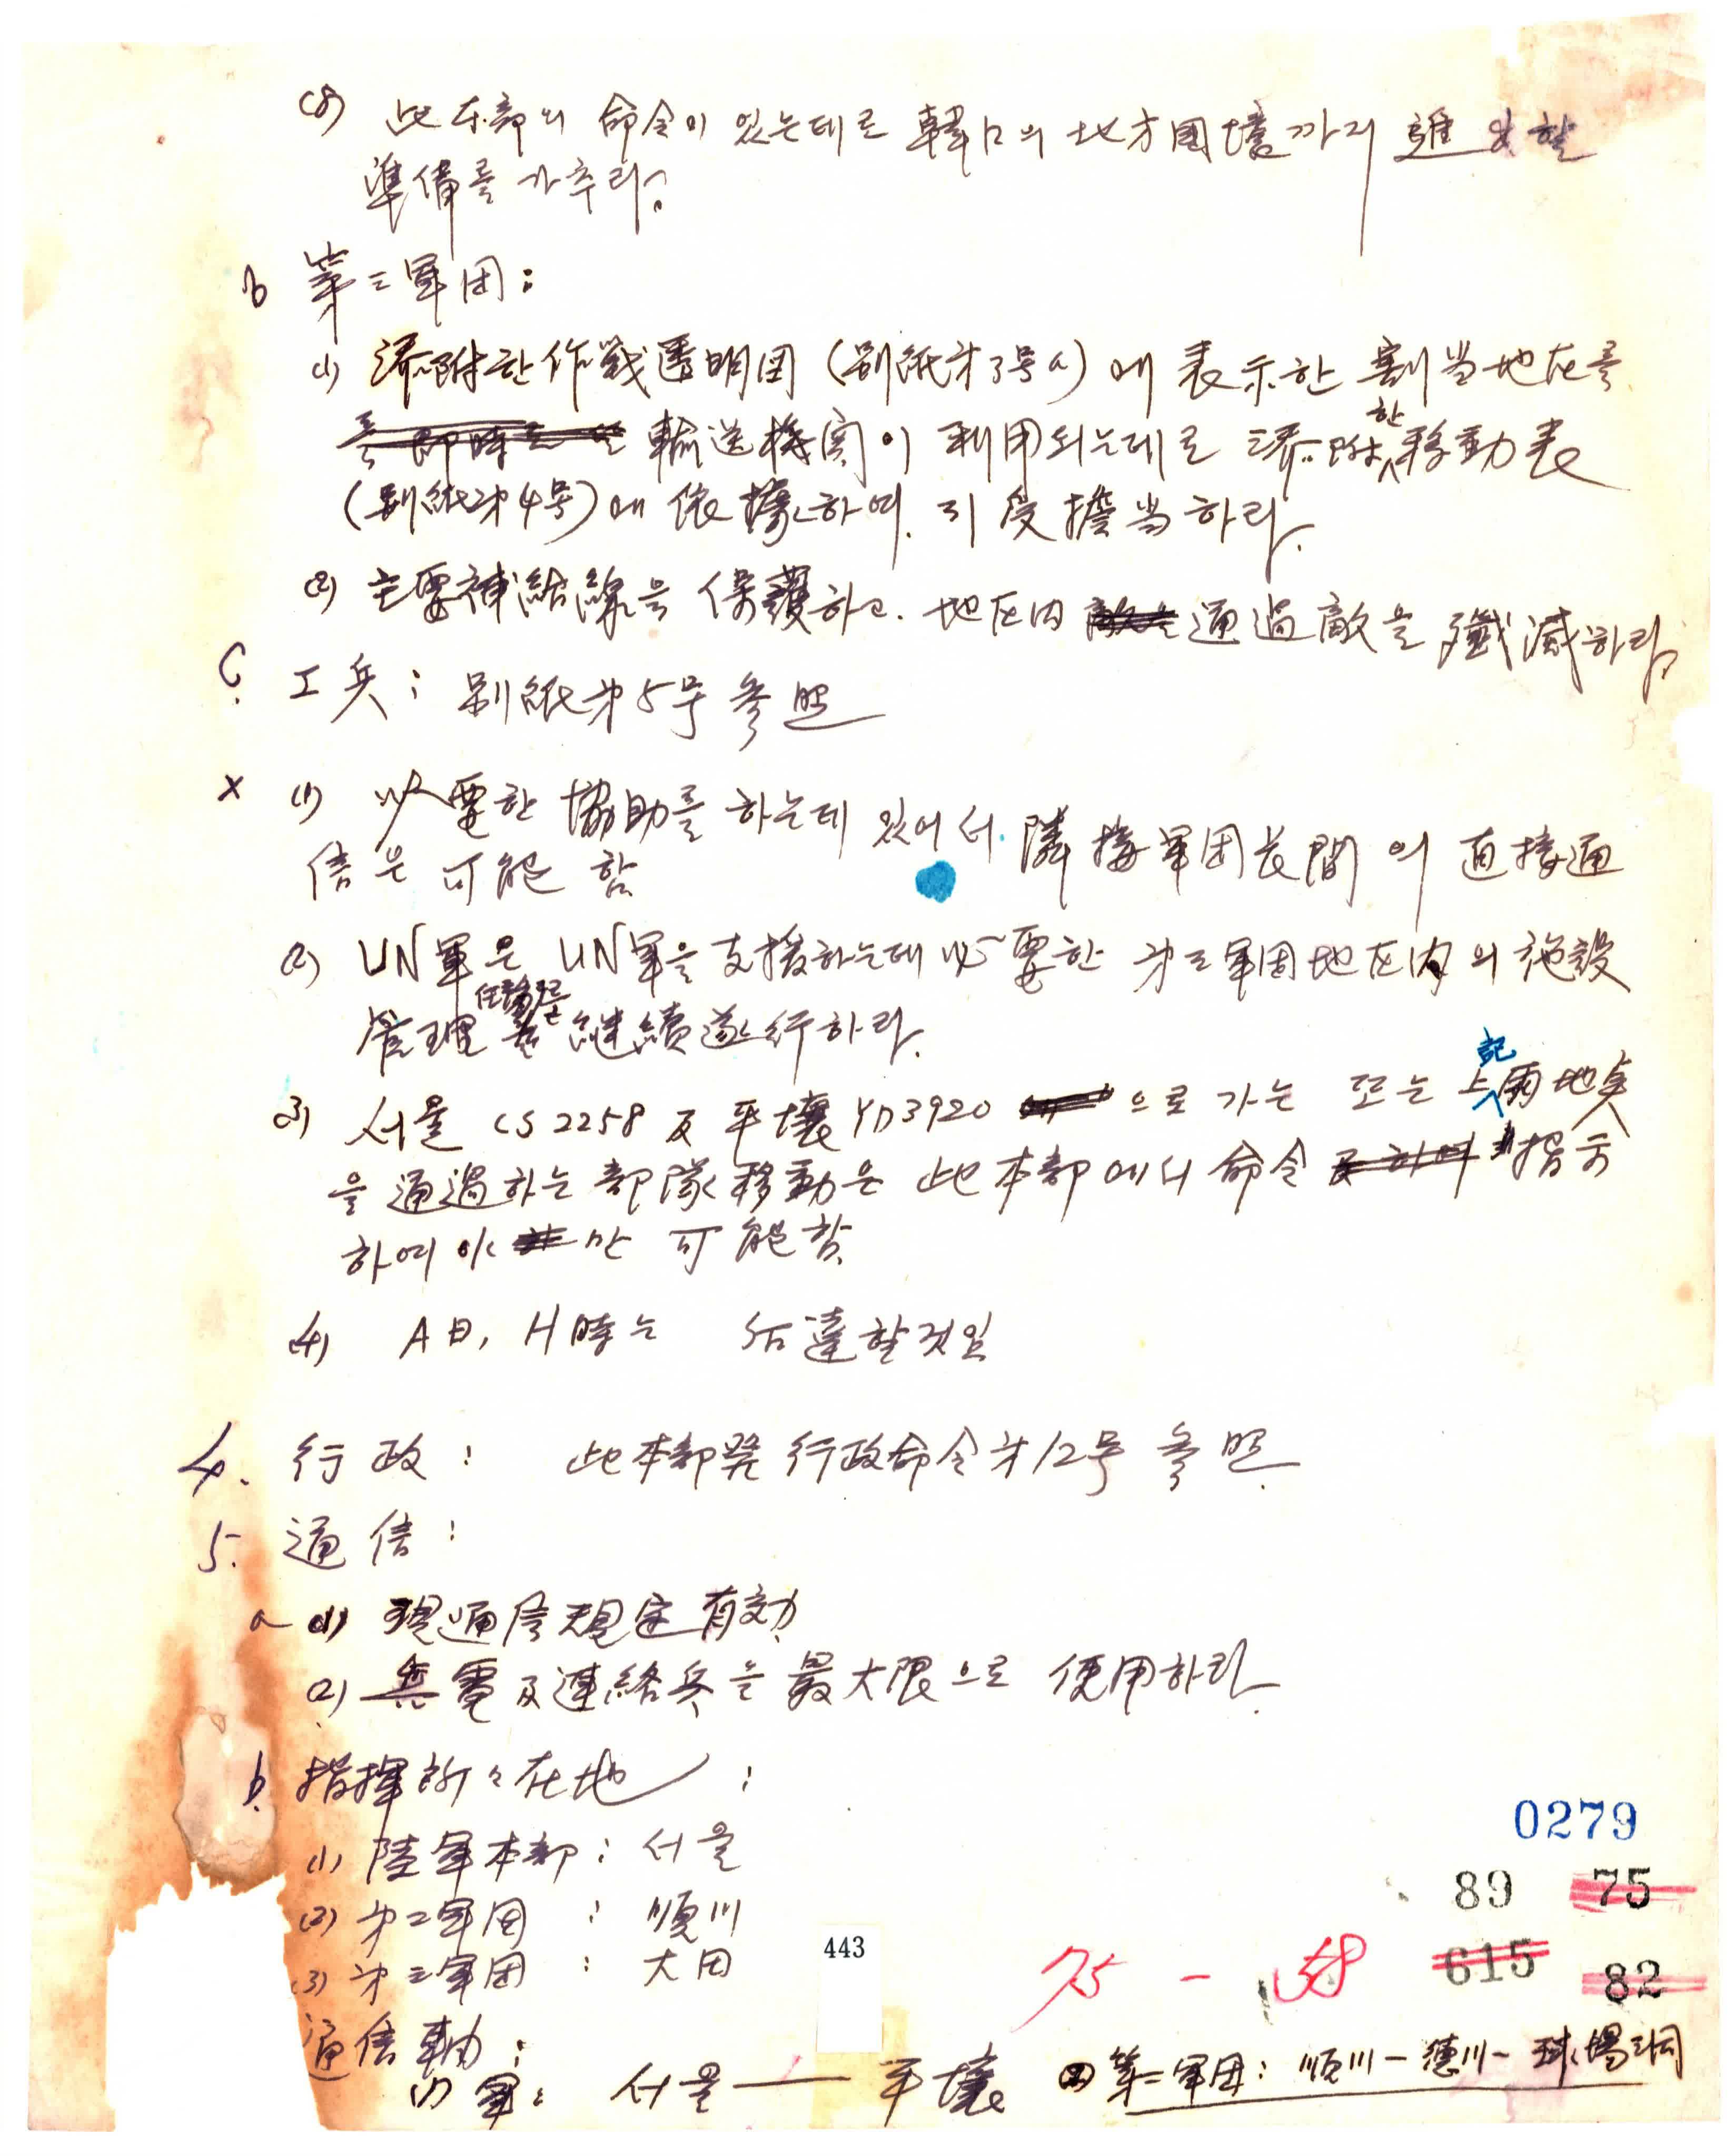 (8) 此本部의 命令이 있는데로 韓口의 地方国境까지 進出할
準備를 가추라.
b 第三軍団:
(1) 添附한 作戦透明図 (別紙才3号a)에 表示한 割当地在를
輸送機関이 利用되는데로 添附한 移動表
(別紙才4号)에 依據하여. 引受擔当하라.
(2) 主要補給線을 保護하고. 地在内 通過敵을 殲滅하라.
C. 工兵: 別紙才5号 参照
X (1) 必要한 協助를 하는데 있어서. 隣接軍団長間의 直接通
信은 可能함
(2) UN軍은 UN軍을 支援하는데 必要한 才三軍団地在内의 施設
管理任務를 継続遂行하라.
(3) 서울 CS 2258 及 平壤 YD3920 으로 가는 또는 上記両地点
을 通過하는 部隊移動은 此本部에서 命令 指示
하여야만 可能함
(4) A日, H時는 后達할것임
4. 行政: 此本部発 行政命令才12号 参照.
5. 通信:
a (1) 現通信規定有効
(2) 無電及連絡兵을 最大限으로 使用하라.
b. 指揮所々在地:
(1) 陸軍本部: 서울
(2) 才二軍団: 順川
(3) 才三軍団: 大田
通信軸:
(1) 軍: 서울 — 平壤 (2) 第二軍団: 順川 - 德川 - 球場洞
443
0279
89 75
75 - 58 615
82